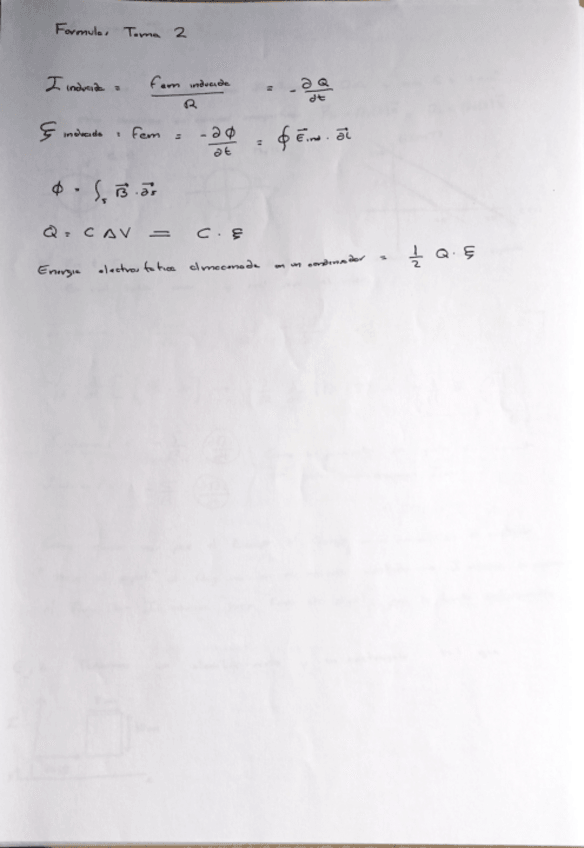 Formulas Tema 2
I inducida = fem inducida / R = - ∂Q / ∂t
ξ inducida = fem = - ∂ϕ / ∂t = ∮ E⃗ind · ∂⃗l
ϕ = ∫s B⃗ · ∂⃗s
Q = C ΔV = C · ξ
Energia electrostatica almacenada en un condensador = 1/2 Q · ξ